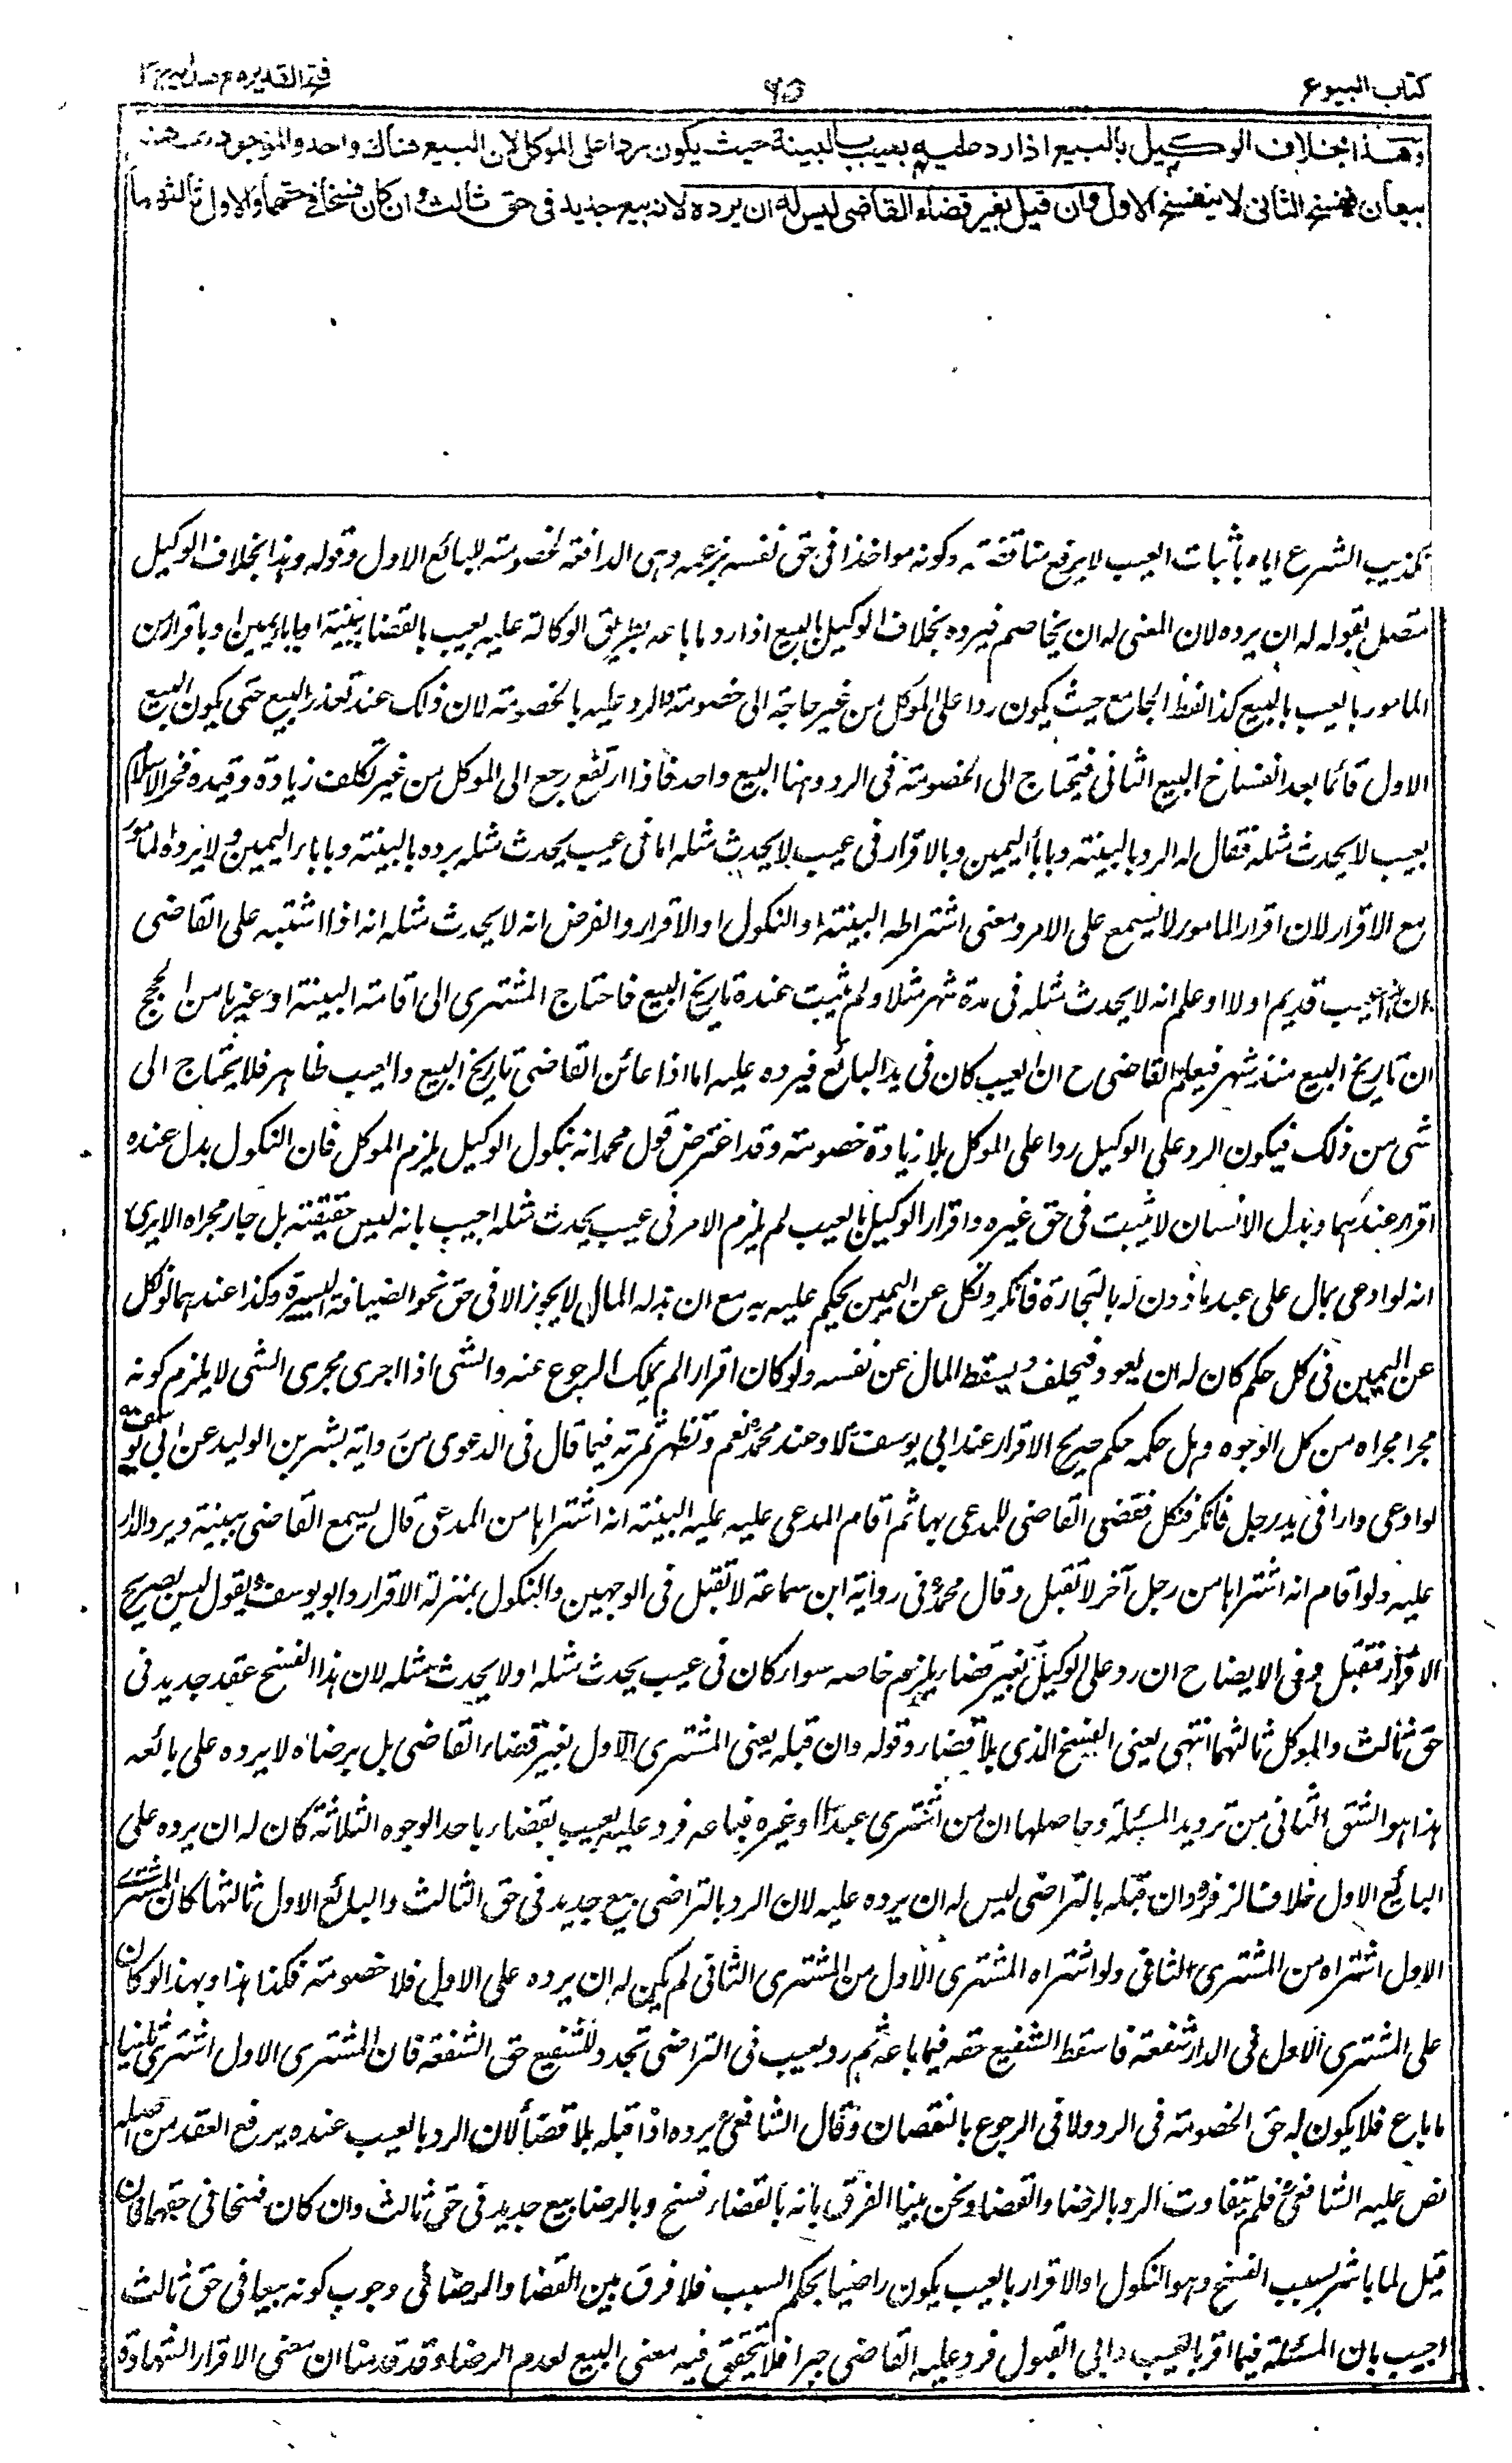 كتاب البيوع
٩٥
فتح القدير مع هدايه ج ٣
وهذا بخلاف الوكيل بالبيع اذا رد عليه بعيب بالبينة حيث يكون ردا على الموكل لان البيع هناك واحد والموجود ههنا
بيعان فبفسخ الثاني لا ينفسخ الاول وان قبل بغير قضاء القاضي ليس له ان يرده لانه بيع جديد في حق ثالث وان كان فسخا في حقهما والاول ثالثهما
تكذيب الشرع اياه باثبات العيب لا يرفع مناقضته وكونه مواخذا في حق نفسه بزعمه وهي الدافعة لخصومته للبائع الاول وقوله وهذا بخلاف الوكيل
متصل بقوله له ان يرده لان المعنى له ان يخاصم فيرده بخلاف الوكيل بالبيع اذا رد ما باعه بطريق الوكالة عليه بعيب بالقضا ببينة او باباء يمين او باقرار من
المامور بالعيب بالبيع كذا لفظ الجامع حيث يكون ردا على الموكل من غير حاجة الى خصومة والرد عليه بالخصومة لان ذلك عند تعذر البيع حتى يكون البيع
الاول قائما بعد انفساخ البيع الثاني فيحتاج الى الخصومة في الرد وهنا البيع واحد فاذا ارتفع رجع الى الموكل من غير تكلف زيادة وقيده فخر الاسلام
بعيب لا يحدث مثله فقال له الرد بالبينة وباباء اليمين وبالاقرار في عيب لا يحدث مثله اما في عيب يحدث مثله يرده بالبينة وباباء اليمين ولا يرده المامور
مع الاقرار لان اقرار المامور لا يسمع على الامر ومعنى اشتراطه البينة او النكول او الاقرار والفرض انه لا يحدث مثله انه اذا اشتبه على القاضي
ان العيب قديم اولا او علم انه لا يحدث مثله في مدة شهر مثلا ولم يثبت عنده تاريخ البيع فاحتاج المشتري الى اقامة البينة او غيرها من الحجج
ان تاريخ البيع منذ شهر فيعلم القاضي ح ان العيب كان في يد البائع فيرده عليه اما اذا عائن القاضي تاريخ البيع والعيب ظاهر فلا يحتاج الى
شي من ذلك فيكون الرد على الوكيل ردا على الموكل بلا زيادة خصومة وقد اعترض قول محمد انه بنكول الوكيل يلزم الموكل فان النكول بدل عنده
اقرار عندهما وبدل الانسان لا يثبت في حق غيره واقرار الوكيل بالعيب لم يلزم الامر في عيب يحدث مثله اجيب بانه ليس حقيقته بل جار مجراه الا يرى
انه لو ادعى بمال على عبد ماذون له بالتجارة فانكر ونكل عن اليمين يحكم عليه به مع ان بدله المال لا يجوز الا في حق نحو الضيافة اليسيرة وكذا عندهما لو نكل
عن اليمين في كل حكم كان له ان يعود فيحلف ويسقط المال عن نفسه ولو كان اقرارا لم يملك الرجوع عنه والشي اذا اجرى مجرى الشي لا يلزم كونه
مجرا مجراه من كل الوجوه وهل حكمه حكم صريح الاقرار عند ابي يوسف لا وعند محمد نعم وتظهر ثمرته فيما قال في الدعوى من رواية بشر بن الوليد عن ابي يوسف
لو ادعى دارا في يد رجل فانكر فنكل فقضى القاضي للمدعي بها ثم اقام المدعى عليه عليه البينة انه اشتراها من المدعي قال يسمع القاضي ببينة ويرد الدار
عليه ولو اقام انه اشتراها من رجل آخر لا تقبل وقال محمد في رواية ابن سماعة لا تقبل في الوجهين والنكول بمنزلة الاقرار وابو يوسف يقول ليس بصريح
الاقرار فتقبل وفي الايضاح ان رد على الوكيل بغير قضاء يلزمه خاصه سواء كان في عيب يحدث مثله او لا يحدث مثله لان هذا الفسخ عقد جديد في
حق ثالث والموكل ثالثهما انتهى يعني الفسخ الذي بلا قضاء وقوله وان قبله يعني المشتري الاول بغير قضاء القاضي بل برضاه لا يرده على بائعه
هذا هو الشق الثاني من ترديد المسئلة وحاصلها ان من اشترى عبدا او غيره فباعه فرد عليه بعيب بقضاء باحد الوجوه الثلاثة كان له ان يرده على
البائع الاول خلافا لزفر وان قبله بالتراضي ليس له ان يرده عليه لان الرد بالتراضي بيع جديد في حق الثالث والبائع الاول ثالثها كان المشتري
الاول اشتراه من المشتري الثاني ولو اشتراه المشتري الاول من المشتري الثاني لم يكن له ان يرده على الاول فلا خصومة فكذا هذا وبهذا لو كان
على المشتري الاول في الدار شفعة فاسقط الشفيع حقه فيما باعه ثم رد بعيب في التراضي تجدد للشفيع حق الشفعة فان المشتري الاول اشترى ثانيا
ما باع فلا يكون له حق الخصومة في الرد ولا في الرجوع بالنقصان وقال الشافعي يرده اذا قبله بلا قضأ لان الرد بالعيب عنده يرفع العقد من اصله
نص عليه الشافعي فلم يتفاوت الرد بالرضا والقضا ونحن بينا الفرق بانه بالقضاء فسخ وبالرضا بيع جديد في حق ثالث وان كان فسخا في حقهما فان
قيل لما باشر بسبب الفسخ وهو النكول او الاقرار بالعيب يكون راضيا بحكم السبب فلا فرق بين القضا والرضا في وجوب كونه بيعا في حق ثالث
اجيب بان المسئلة فيما اقر بالعيب وابى القبول فرد عليه القاضي جبرا فلا يتحقق فيه معنى البيع لعدم الرضاء وقد قدمنا ان معنى الاقرار الشهادة